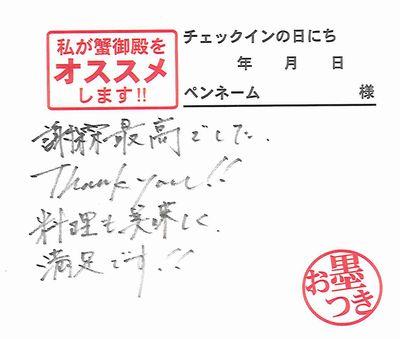 私が蟹御殿を
オススメ
します!!
チェックインの日にち
年 月 日
ペンネーム 様
最高でした.
Thank you!!
料理も美味しく.
満足です.!!
お墨つき